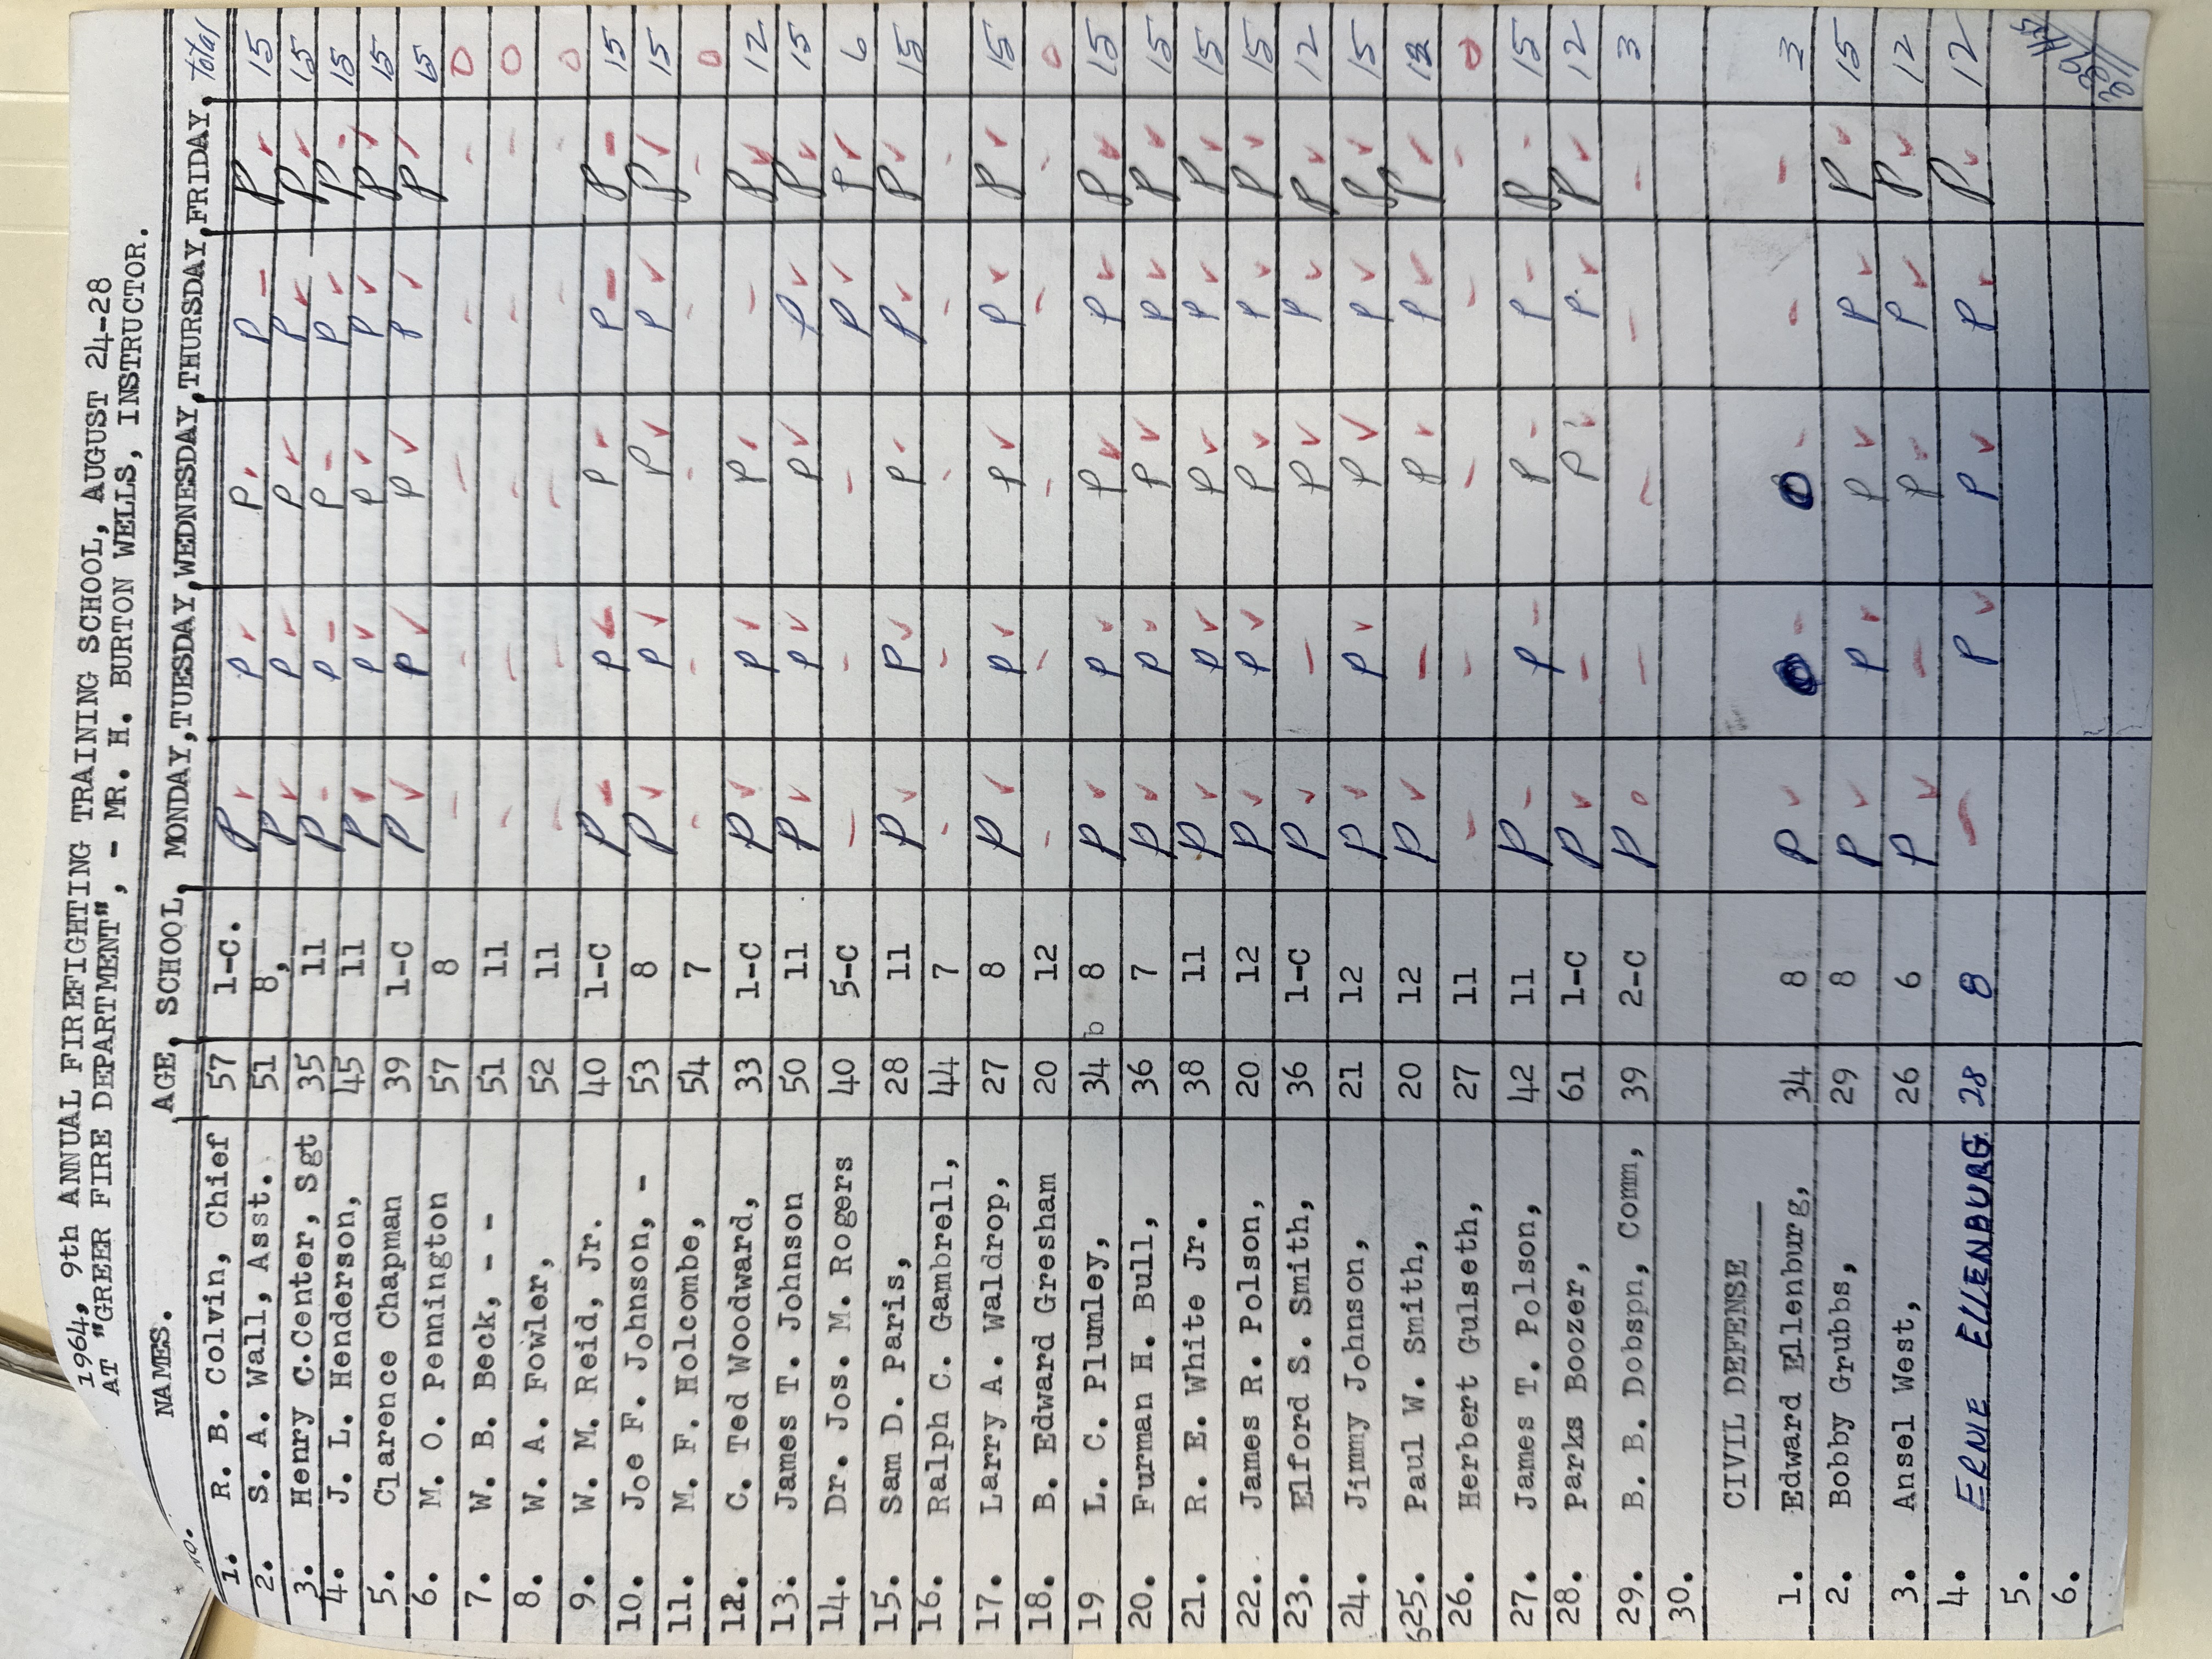 1964, 9th ANNUAL FIREFIGHTING TRAINING SCHOOL, AUGUST 24-28
AT "GREER FIRE DEPARTMENT", - MR. H. BURTON WELLS, INSTRUCTOR.
NO. NAMES. AGE, SCHOOL, MONDAY, TUESDAY, WEDNESDAY, THURSDAY, FRIDAY, Total
1. R. B. Colvin, Chief 57 1-C. P P P P P 15
2. S. A. Wall, Asst. 51 8, P P P P P 15
3. Henry C.Center, Sgt 35 11 P P P P P 15
4. J. L. Henderson, 45 11 P P P P P 15
5. Clarence Chapman 39 1-C P P P P P 15
6. M. O. Pennington 57 8 - - - - - 0
7. W. B. Beck, - - 51 11 - - - - - 0
8. W. A. Fowler, 52 11 - - - - - 0
9. W. M. Reid, Jr. 40 1-C P P P P P 15
10. Joe F. Johnson, - 53 8 P P P P P 15
11. M. F. Holcombe, 54 7 - - - - - 0
12. C. Ted Woodward, 33 1-C P P P - P 12
13. James T. Johnson 50 11 P P P P P 15
14. Dr. Jos. M. Rogers 40 5-C - - - P P 6
15. Sam D. Paris, 28 11 P P P P P 15
16. Ralph C. Gambrell, 44 7 - - - - -
17. Larry A. Waldrop, 27 8 P P P P P 15
18. B. Edward Gresham 20 12 - - - - - 0
19 L. C. Plumley, 34 b 8 P P P P P 15
20. Furman H. Bull, 36 7 P P P P P 15
21. R. E. White Jr. 38 11 P P P P P 15
22. James R. Polson, 20 12 P P P P P 15
23. Elford S. Smith, 36 1-C P - P P P 12
24. Jimmy Johnson, 21 12 P P P P P 15
625. Paul W. Smith, 20 12 P - P P P 12
26. Herbert Gulseth, 27 11 - - - - - 0
27. James T. Polson, 42 11 P P P P P 15
28. Parks Boozer, 61 1-C P - P P P 12
29. B. B. Dobspn, Comm, 39 2-C P - - - - 3
30.
CIVIL DEFENSE
1. Edward Ellenburg, 34 8 P 0 0 - - 3
2. Bobby Grubbs, 29 8 P P P P P 15
3. Ansel West, 26 6 P - P P P 12
4. ERNIE ELLENBURG 28 8 - P P P P 12
5.
6.